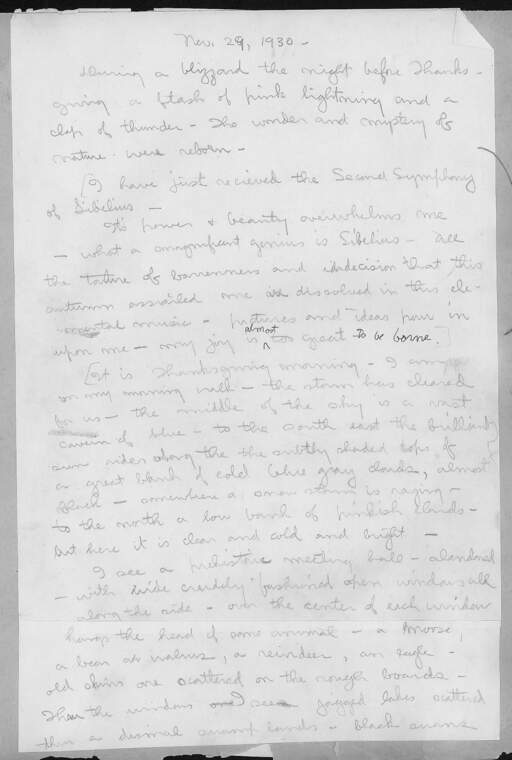 Nov. 29, 1930 -
During a blizzard the night before Thanks-
giving a flash of pink lightning and a
clap of thunder - The wonder and mystery of
nature were reborn -
[I have just recieved the Second Symphony
of Sibelius -
Its power & beauty overwhelms me
- what a magnificent genius is Sibelius - All
the torture of barrenness and indecision that this
autumn assailed me is dissolved in this ele-
mental music - pictures and ideas pour in
upon me - my joy is almost too great to be borne.]
[It is Thanksgiving morning - I am
on my morning walk - the storm has cleared
for us - the middle of the sky is a vast
cavern of blue - to the south east the brilliant
sun rides along the the subtly shaded tops of
a great bank of cold blue gray clouds, almost
black - somewhere a snow storm is raging -
to the north a low bank of pinkish clouds -
but here it is clear and cold and bright -
I see a prehistoric meeting hall - abandoned
- with wide crudely fashioned open windows all
along the side - over the center of each window
hangs the head of some animal - a morse,
a bear a walrus, a reindeer, an eagle -
old skins are scattered on the rough boards -
Thru the windows I see jagged lakes scattered
thru a dismal swamp lands - black swans